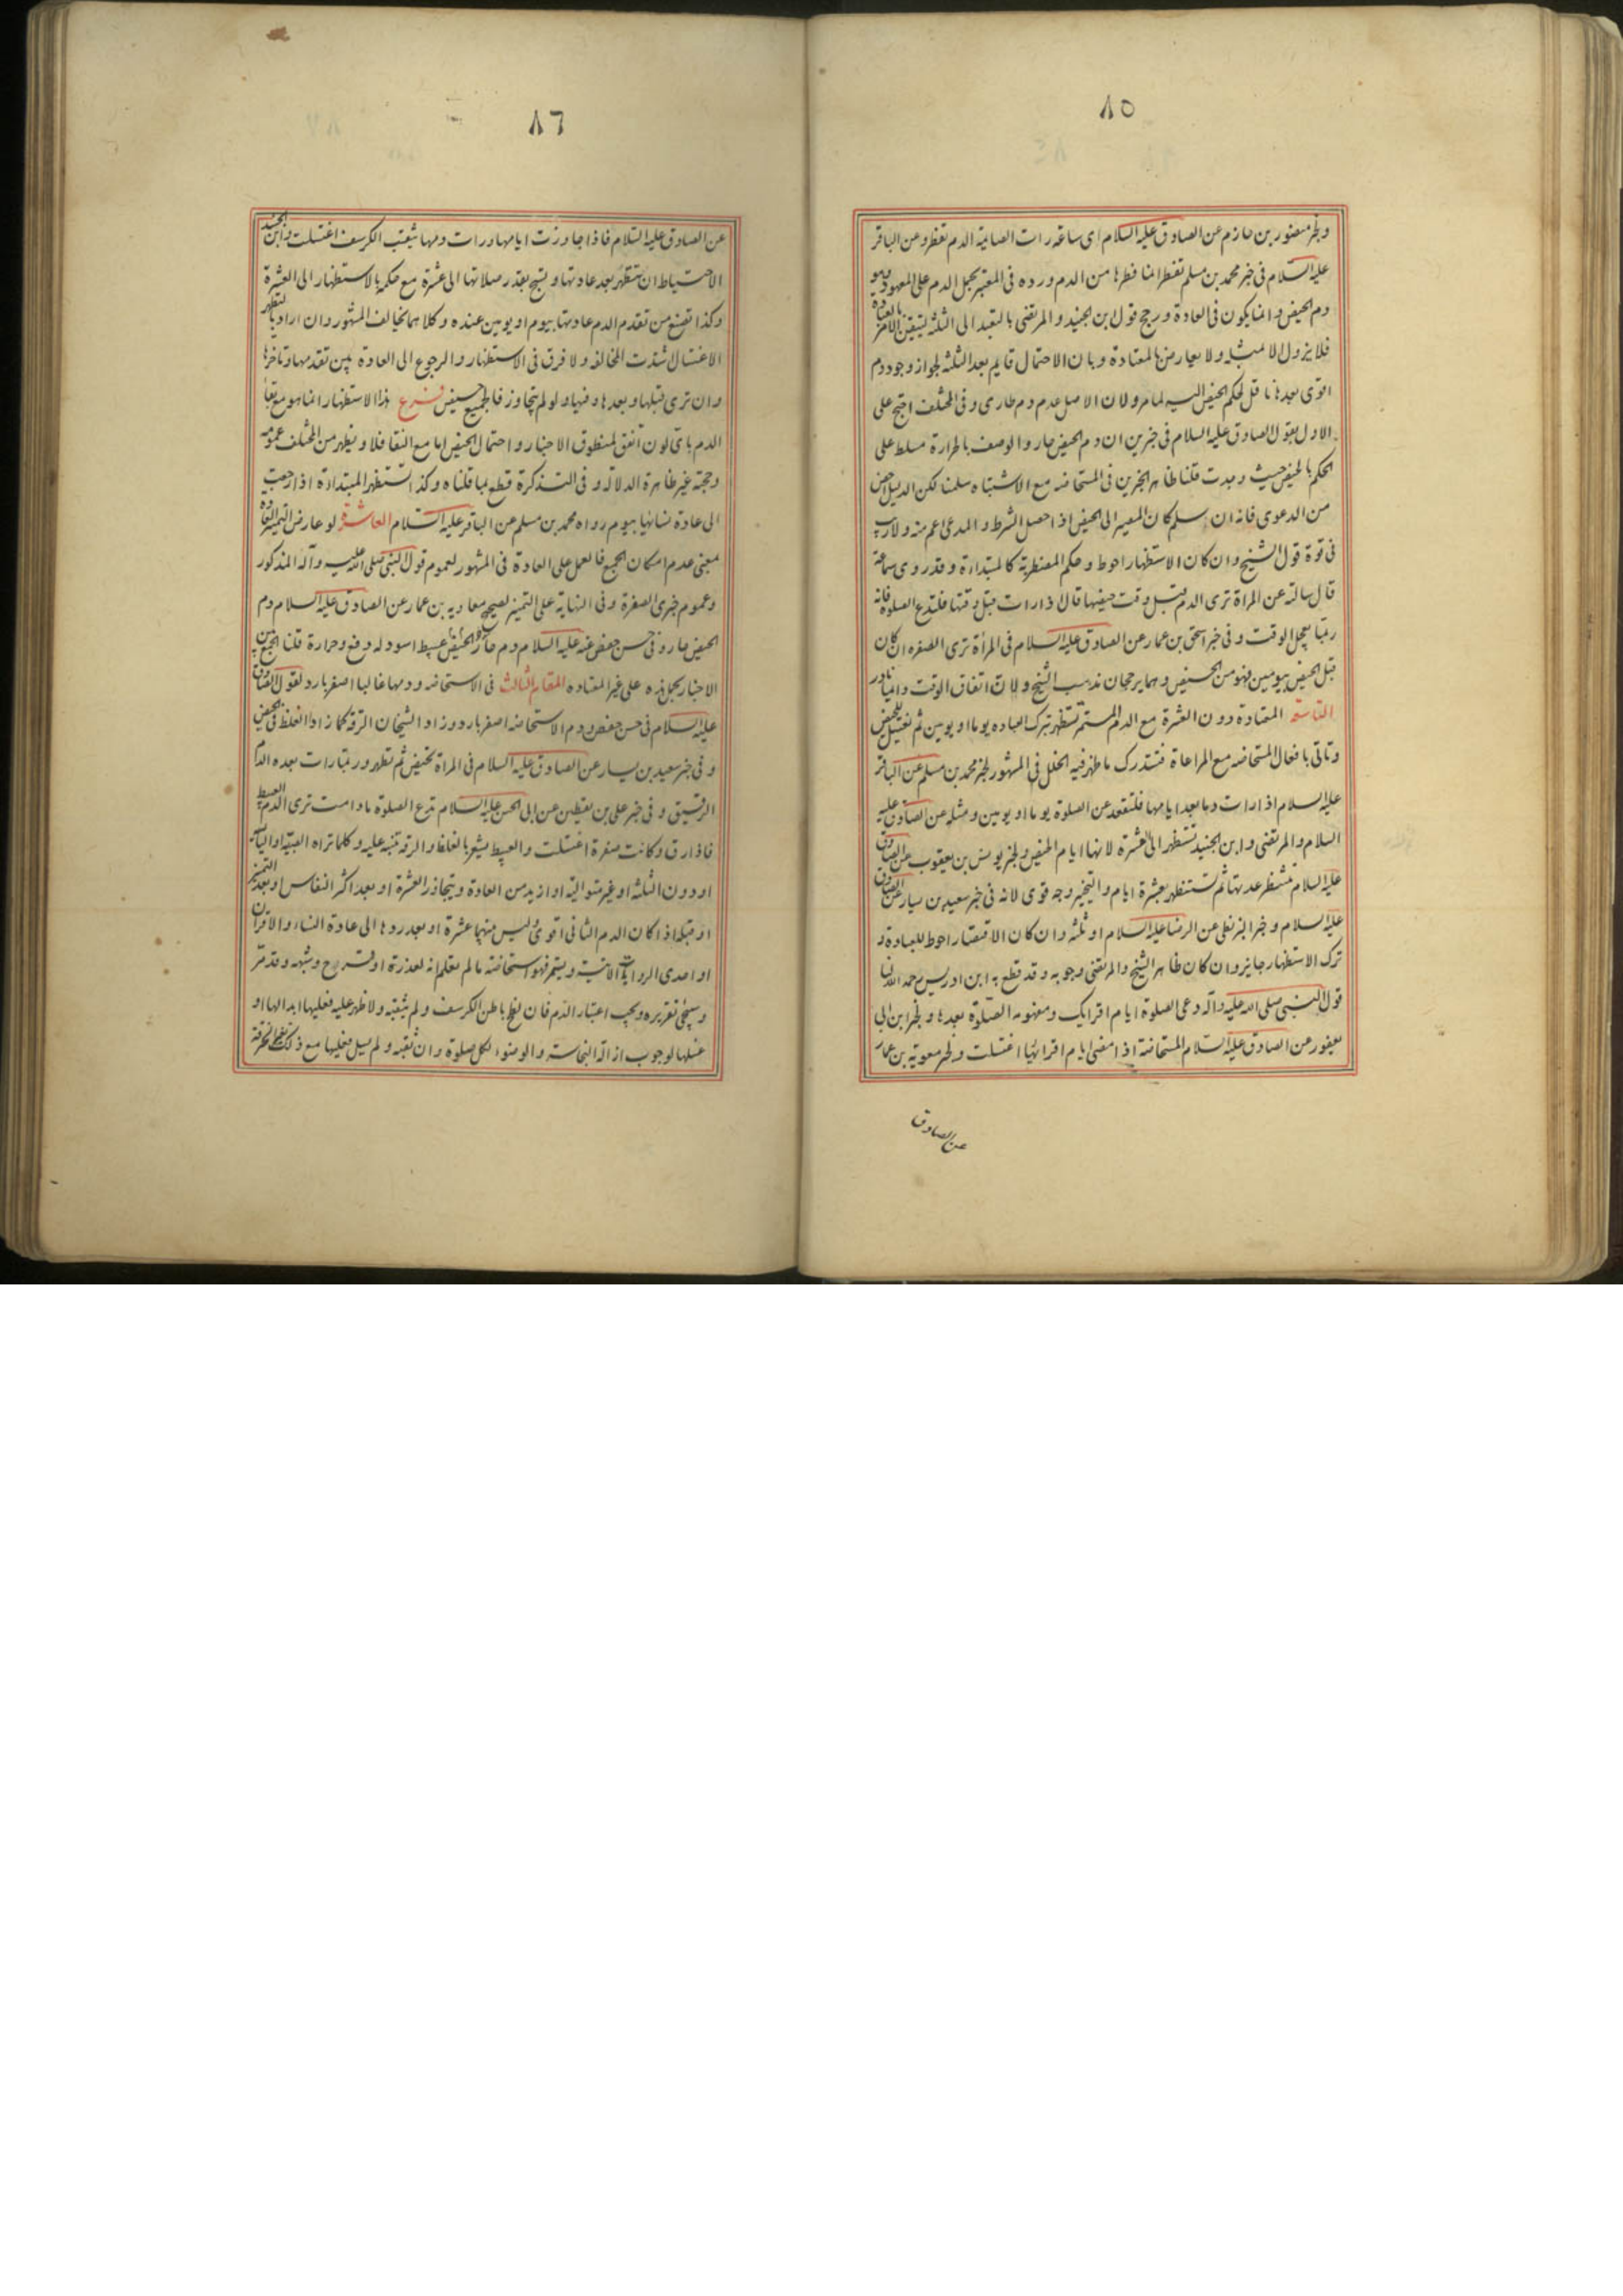 ٨٥
ولخبر منصور بن حازم عن الصادق عليه السلام اى ساعة رات الصايمة الدم تفطر وعن الباقر
عليه السلام فى خبر محمد بن مسلم تفطر انما فطرها من الدم ورده فى المعتبر بحمل الدم على المعهود وهو
دم الحيض وانما يكون فى العادة ورجح قول ابن الجنيد والمرتضى بالتعبد الى الثلثة ليتيقن الامر بالعبادة
فلا يزول الا بمثله ولا يعارض بالمعتادة وبان الاحتمال قايم بعد الثلثة لجواز وجود دم
اقوى بعدها ناقل لحكم الحيض اليه لما مر ولان الاصل عدم دم طارى وفى المختلف احتج على
الاول بقول الصادق عليه السلام فى خبرين ان دم الحيض حار والوصف بالحرارة مسلط على
الحكم بالحيض حيث وجدت قلنا ظاهر الخبرين فى المستحاضه مع الاشتباه سلمنا لكن الدليل اخص
من الدعوى فانه ان سلم كان المصير الى الحيض اذا حصل الشرط والمدعى اعم منه ولا ريب
فى قوة قول الشيخ وان كان الاستظهار احوط وحكم المضطربة كالمبتداءة وقد روى سماعة
قال سالته عن المراة ترى الدم قبل وقت حيضها قال اذا رات قبل وقتها فلتدع الصلوة فانه
ربما يعجل الوقت وفى خبر اسحق بن عمار عن الصادق عليه السلام فى المراة ترى الصفره ان كان
قبل الحيض بيومين فهو من الحيض وهما يرجحان مذهب الشيخ ولان اتفاق الوقت دايما نادر
التاسعة المعتادة دون العشرة مع الدم المستمر تستظهر بترك العباده يوما او يومين ثم تغتسل للحيض
وتاتى بافعال المستحاضه مع المراعاة فتستدرك ما ظهر فيه الخلل فى المشهور لخبر محمد بن مسلم عن الباقر
عليه السلام اذا رات دما بعد ايامها فلتقعد عن الصلوة يوما او يومين ومثله عن الصادق عليه
السلام والمرتضى وابن الجنيد تستظهر الى عشرة لانها ايام الحيض ولخبر يونس بن يعقوب عن الصادق
عليه السلام تنتظر عدتها ثم تستظهر بعشرة ايام والتخيير وجه قوى لانه فى خبر سعيد بن يسار عن الصادق
عليه السلام وخبر البزنطى عن الرضا عليه السلام او ثلثه وان كان الاقتصار احوط للعبادة و
ترك الاستظهار جايز وان كان ظاهر الشيخ والمرتضى وجوبه وقد قطع به ابن ادريس رحمه الله لنا
قول النبى صلى الله عليه واله دعى الصلوة ايام اقرايك ومفهومه الصلوة بعدها ولخبر ابن ابى
يعفور عن الصادق عليه السلام المستحاضة اذا مضى ايام اقرائها اغتسلت ولخبر معوية بن عمار
عن الصادق
٨٦
عن الصادق عليه السلام فاذا جاوزت ايامها ورات دمها يثقب الكرسف اغتسلت وابن الجنيد
الاحتياط ان تستظهر بعد عادتها و بقدر صلاتها الى عشرة مع حكمه بالاستظهار الى العشرة
وكذا تصنع من تقدم الدم عادتها بيوم او يومين عنده وكلاهما مخالف المشهور وان اراد بالتطهر
الاغتسال اشتدت المخالفه ولا فرق فى الاستظهار والرجوع الى العادة بين تقدمها وتاخرها
وان ترى قبلها وبعدها وفيها ولو لم يتجاوز فالجميع حيض فرع هذا الاستظهار انما هو مع بقاء
الدم باى لون اتفق لمنطوق الاخبار واحتمال الحيض اما مع النقا فلا ويظهر من المختلف عمومه
وحجته غير ظاهرة الدلاله وفى التذكرة قطع بما قلناه وكذا تستظهر المبتداءة اذا رجعت
الى عادة نسائها بيوم رواه محمد بن مسلم عن الباقر عليه السلام العاشرة لو عارض التميز العادة
بمعنى عدم امكان الجمع فالعمل على العادة فى المشهور لعموم قول النبى صلى الله عليه وآله المذكور
وعموم خبرى الصفرة وفى النهاية على التميز لصحيح معاويه بن عمار عن الصادق عليه السلام دم
الحيض حار وفى حسن حفص عنه عليه السلام دم الحيض حار عبيط اسود له دفع وحرارة قلنا الجمع بين
الاخبار بحمل هذه على غير المعتاده المقام الثالث فى الاستحاضه ودمها غالبا اصفر بارد لقول الصادق
عليه السلام فى حسن حفص ودم الاستحاضه اصفر بارد وزاد الشيخان الرقه كما زادا الغلظ فى الحيض
وفى خبر سعيد بن يسار عن الصادق عليه السلام فى المراة تحيض ثم تطهر وربما رات بعده الدم
الرقيق وفى خبر على بن يقطين عن ابى الحسن عليه السلام تدع الصلوة مادامت ترى الدم العبيط
فاذا رق وكانت صفرة اغتسلت والعبيط يشعر بالغلظ والرقه تنبه عليه وكلما تراه الصبية او اليائسة
او دون الثلثه او غير متواليه او ازيد من العادة ويتجاوز العشرة او بعد اكثر النفاس او بعد التميز
او قبله اذا كان الدم الثانى اقوى وليس منتهيا عشرة او بعد ردها الى عادة النساء والاقران
او احدى الروايات الاتية ويستمر فهو استحاضة ما لم تعلم انه لعذرة او قرح وشبهه وقد مر
وسيجئ تقريره ويجب اعتبار الدم فان لطخ باطن الكرسف ولم يثقبه ولا ظهر عليه فعليها ابدالها او
غسلها لوجوب ازالة النجاسة والوضوء لكل صلوة وان ثقبه ولم يسل فعليها مع ذلك تغيير الخرقة